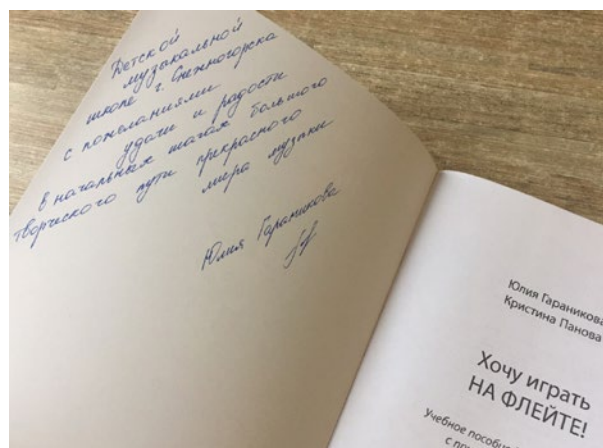 Детской
музыкальной
школе г. Снежногорска
с пожеланиями
удачи и радости
в начальных шагах большого
творческого пути прекрасного
мира музыки
Юлия Гараникова
Юлия Гараникова
Кристина Панова
Хочу играть
НА ФЛЕЙТЕ!
Учебное пособие